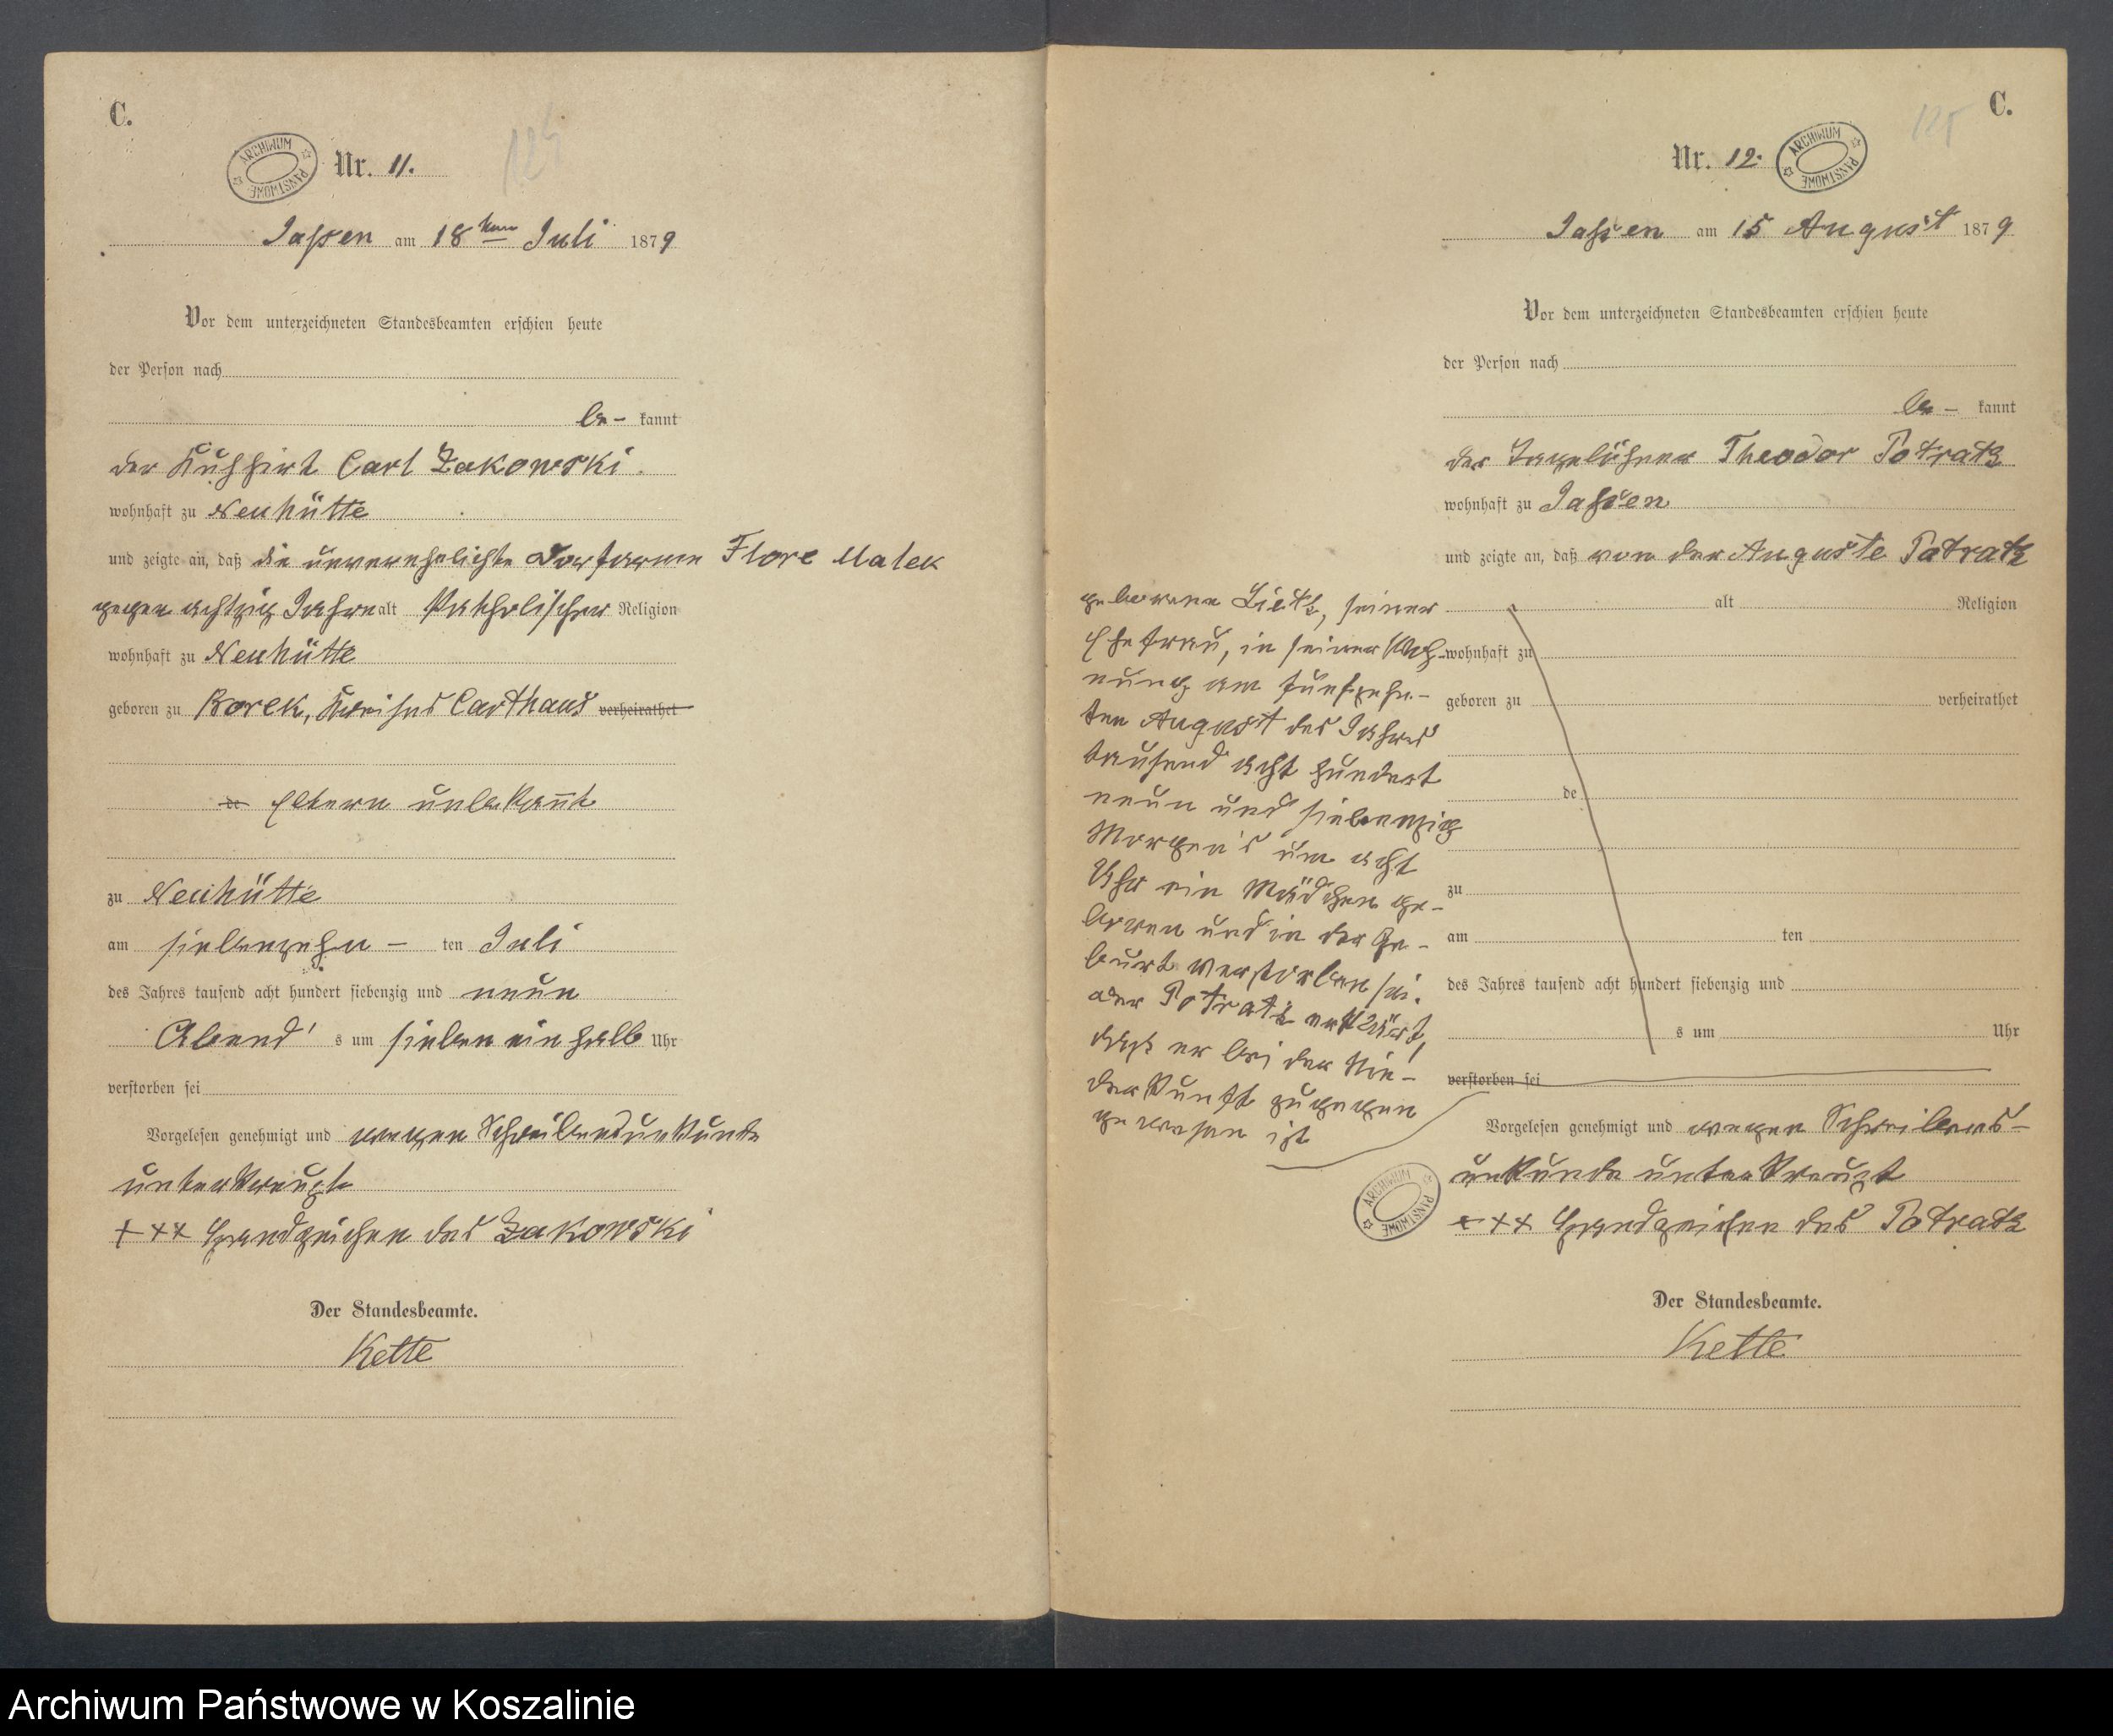 C.
ARCHIWUM PAŃSTWOWE
Nr. 11.
124
Jassen am 18ten Juli 1879
Vor dem unterzeichneten Standesbeamten erschien heute
der Person nach
be- kannt
der Kuhhirt Carl Zakowski.
wohnhaft zu Neuhütte
und zeigte an, daß die unverehelichte Dorfarme Flore Malek
gegen achtzig Jahre alt katholischer Religion
wohnhaft zu Neuhütte
geboren zu Borek, Kreises Carthaus verheirathet
de Eltern unbekannt
zu Neuhütte
am siebenzehn- ten Juli
des Jahres tausend acht hundert siebenzig und neun
Abend's um sieben ein halb Uhr
verstorben sei
Vorgelesen genehmigt und wegen Schreibensunkunde
unterkreuzt
+++ Handzeichen des Zakowski
Der Standesbeamte.
Kette
C.
125
Nr. 12.
ARCHIWUM PAŃSTWOWE
Jassen am 15 August 1879
Vor dem unterzeichneten Standesbeamten erschien heute
der Person nach
be- kannt
der Tagelöhner Theodor Potratz
wohnhaft zu Jassen
und zeigte an, daß von der Auguste Potratz
geborene Lietz, seiner
Ehefrau, in seiner Woh-
nung am fünfzehn-
ten August des Jahres
tausend acht hundert
neun und siebenzig
Morgen's um acht
Uhr ein Mädchen ge-
boren und in der Ge-
burt verstorben sei.
Der Potratz erklärt,
daß er bei der Nie-
derkunft zugegen
gewesen ist
alt Religion
wohnhaft zu
geboren zu verheirathet
de
zu
am ten
des Jahres tausend acht hundert siebenzig und
s um Uhr
verstorben sei
Vorgelesen genehmigt und wegen Schreibens-
unkunde unterkreuzt
ARCHIWUM PAŃSTWOWE
+++ Handzeichen des Potratz
Der Standesbeamte.
Kette
Archiwum Państwowe w Koszalinie